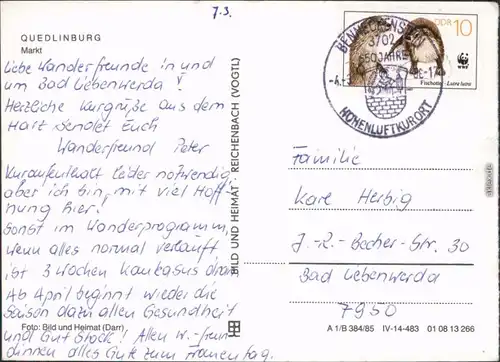 7.3.
QUEDLINBURG
Markt
Liebe Wanderfreunde in und
um Bad Liebenwerda!
Herzliche Kurgrüße aus dem
Harz sendet Euch
Wanderfreund Peter
Kuraufenthalt leider notwendig,
aber ich bin mit viel Hoff-
nung hier!
Sonst im Wanderprogramm,
wenn alles normal verläuft
ist 3 Wochen Kaukasus dran.
Ab April beginnt wieder die
Saison dazu allen Gesundheit
und Gut Stock! Allen W.-freun-
dinnen alles Gute zum Frauentag.
Foto: Bild und Heimat (Darr)
BILD UND HEIMAT REICHENBACH (VOGTL)
BENNECKENSTEIN
3702
650 JAHRE
HÖHENLUFTKURORT
DDR 10
WWF
Fischotter - Lutra lutra
Familie
Karl Herbig
J.-R.-Becher-Str. 30
Bad Liebenwerda
7950
A 1/B 384/85 IV-14-483 01 08 13 266